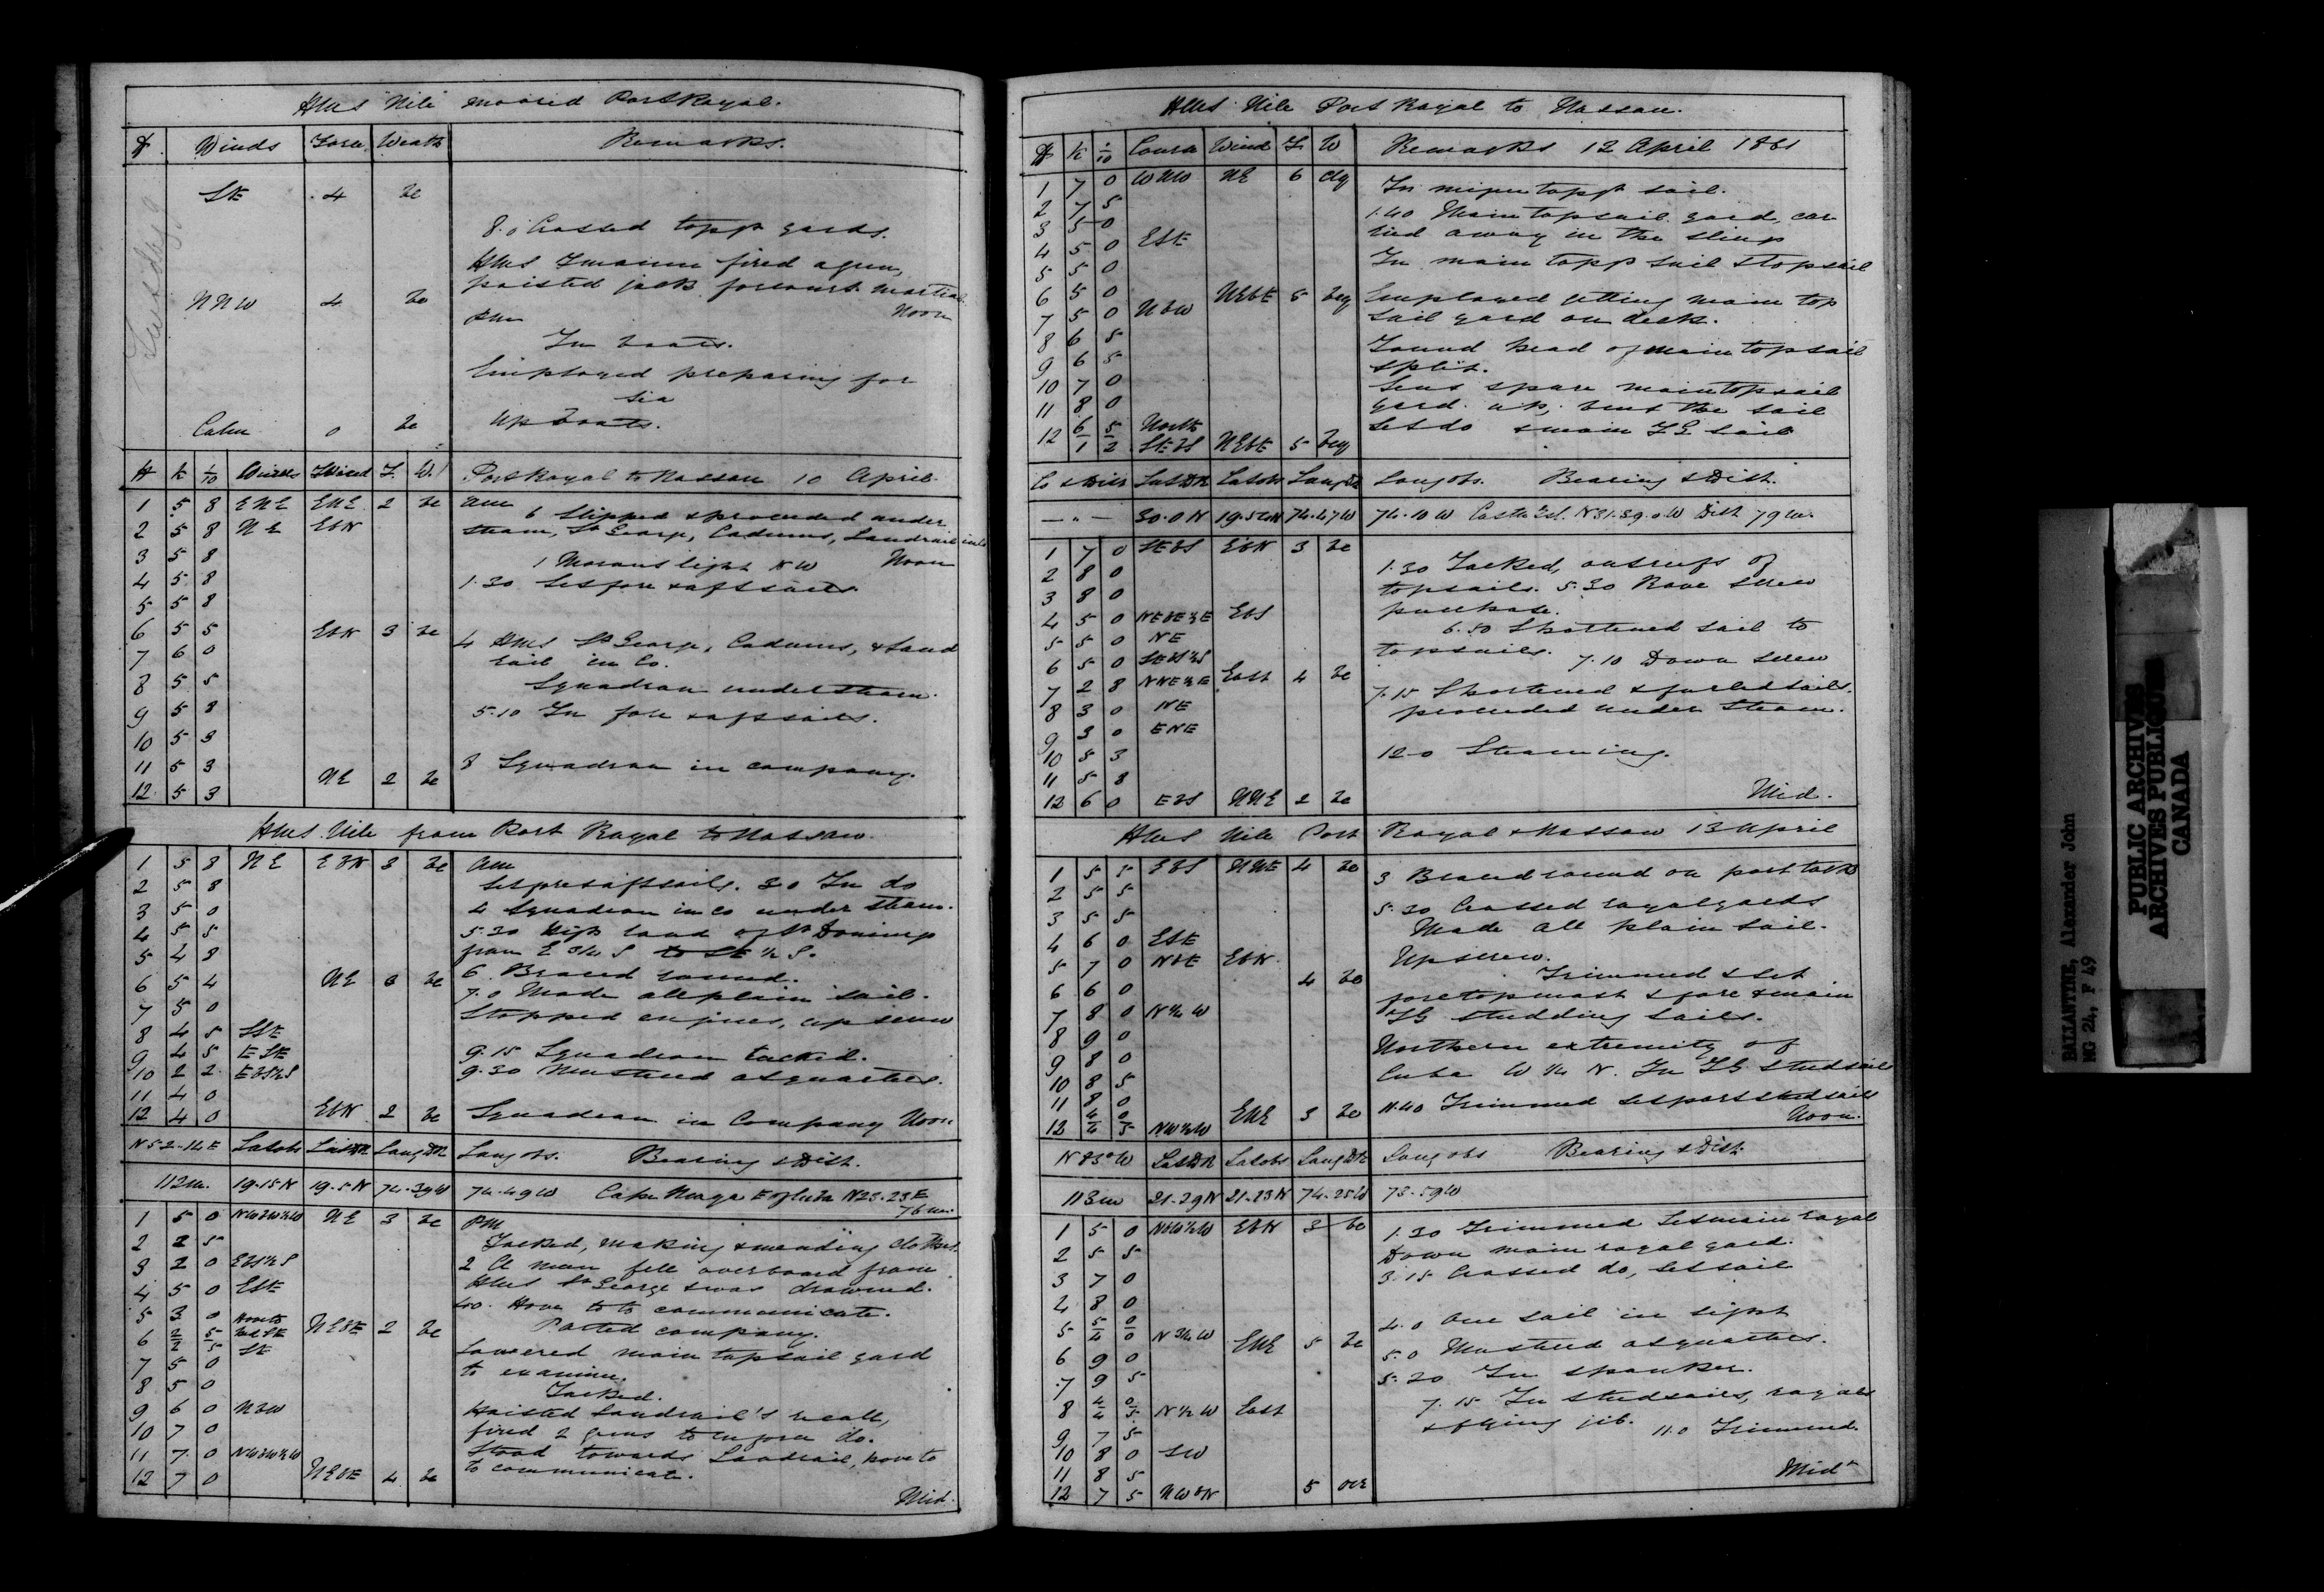 HMS "Nile" moored Port Royal.
H Winds Force Weath Remarks.
SE 4 bc
8.0 Crossed topgt yards.
HMS Imaum fired a gun,
hoisted jack for court martial
NNW 4 bc Noon
PM
In boats.
Employed preparing for
sea
Calm 0 bc Up boats.
H K 1/10 Wind F. W. Port Royal to Nassau 10 April.
1 5 8 ENE ENE 2 bc am
6 Slipped & proceeded under
2 5 8 NE EbN steam, St George, Cadmus, Landrail in Co
3 5 8 1 Morant light NW Noon
4 5 8 1.30 Set fore & aft sails.
5 5 8
6 5 5 EbN 3 bc 4 HMS St George, Cadmus, & Land
7 6 0 rail in Co.
8 5 5 Squadron under steam.
9 5 8 5.10 In fore & aft sails.
10 5 3
11 5 3 8 Squadron in company.
12 5 3 NE 2 bc
HMS Nile from Port Royal to Nassau.
1 5 8 NE EbN 3 bc am
2 5 8 Set fore & aft sails. 3.0 In do
3 5 0 4 Squadron in co under steam.
4 5 5 5.30 High land of St Doming
5 4 8 from E 3/4 S to SE 1/2 S.
6 5 4 NE 3 bc 6 Braced round.
7 5 0 7.0 Made all plain sail.
8 4 5 SSE Stopped engines, up screw
9 4 5 ESE 9.15 Squadron tacked.
10 2 2 EbS1/2S 9.30 Mustered at quarters.
11 4 0
12 4 0 EbN 2 bc Squadron in Company Noon
N52.14E Lat obs Lat DR Long DR Long obs. Bearing & Dist.
112m. 19.15N 19.5N 74.39W 74.49W Cape Maysi E of Cuba N23.23E
76m.
1 5 0 NWbW1/2W NE 3 bc PM
2 2 5 Tacked, making & mending clothes.
3 2 0 EbS1/2S 2 A man fell overboard from
4 5 0 ESE HMS St George & was drowned.
5 3 0 North 4.0. Hove to to communicate.
6 2/2 5/5 NEbE 2 bc Parted company.
7 5 0 SE Lowered main topsail yard
8 5 0 to examine.
Tacked.
9 6 0 NbW Hoisted Landrail's recall,
10 7 0 fired 2 guns to enforce do.
11 7 0 NWbW1/2W Stood towards Landrail, hove to
12 7 0 NEbE 4 bc to communicate.
Mid.
HMS Nile Port Royal to Nassau.
H K 1/10 Course Wind F W Remarks 12 April 1861
1 7 0 WNW NE 6 cq In mizen topgt sail.
2 7 5 1.40 Main topsail yard, car
3 5 0 ried away in the slings
4 5 0 ESE In main topgt sail & topsail
5 5 0
6 5 0 NEbE 5 bcq Employed getting main top
7 5 0 NbW sail yard on deck.
8 6 5 Found head of main topsail
9 6 5 split.
10 7 0 Sent spare main topsail
11 8 0 yard up, bent the sail
12 6/1 5/2 North SEbS NEbE 5 bcq Set do & main TG sail
Co & Dist Lat DR Lat obs Long DR Long obs. Bearing & Dist.
— " — 30.0N 74.47W 74.10W Castle Isl. N31.39.0W Dist 79m.
1 7 0 SEbS EbN 3 bc
2 8 0 1.30 Tacked, out reefs of
3 8 0 topsails. 5.30 Rove screw
4 5 0 NEbE1/2E EbS purchase.
5 5 0 NE 6.50 Shortened sail to
6 5 0 SEbS1/2S topsails. 7.10 Down screw
7 2 8 NNE1/2E East 4 bc 7.15 Shortened & furled sails.
8 3 0 NE proceeded under steam.
9 3 0 ENE
10 5 3 12.0 Steaming.
11 5 8
12 6 0 EbS NNE 2 bc Mid.
HMS Nile Port Royal & Nassau 13 April
1 5 5 EbS NNE 4 bc 3 Braced round on port tack
2 5 5
3 5 5 5.30 Crossed royal yards
4 6 0 ESE Made all plain sail.
5 7 0 NbE EbN Up screw.
6 6 0 4 bc Trimmed & set
7 8 0 N1/4W foretopmast & fore & main
8 9 0 TG studding sails.
9 8 0 Northern extremity of
10 8 5 Cuba W 1/4 N. In TG studsails
11 8 0 11.40 Trimmed set port studsails
12 4/4 0/5 NW1/2W ENE 3 bc Noon.
N83°W Lat DR Lat obs Long DR Long obs Bearing & Dist.
113m 21.29N 21.23N 74.25W 73.59W
1 5 0 NbW1/2W EbN 3 bc 1.30 Trimmed set main royal
2 5 5 Down main royal yard.
3 7 0 3.15 Crossed do, set sail
4 8 0 4.0 One sail in sight
5 5/4 0/0 N3/4W ENE 5 bc 5.0 Mustered at quarters.
6 9 0 5.20 In spanker.
7 9 5 7.15 In studsails, royals
8 4/4 0/5 N1/2W East & flying jib. 11.0 Trimmed.
9 7 5
10 8 0 SW
11 8 5 Midt
12 7 5 NWbN 5 ocr
PUBLIC ARCHIVES
ARCHIVES PUBLIQUES
CANADA
BALLANTINE, Alexander John
MG 24, F 49